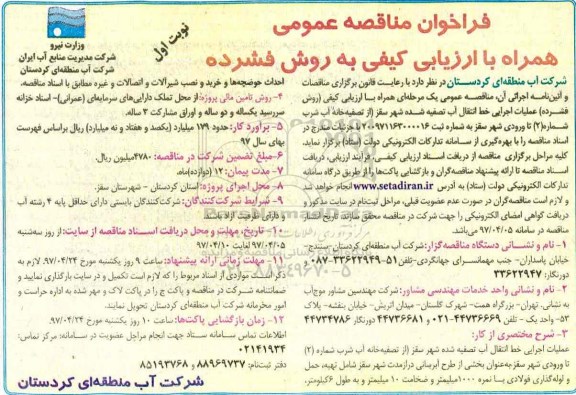 فراخوان مناقصه عمومی
همراه با ارزیابی کیفی به روش فشرده
نوبت اول
وزارت نیرو
شرکت مدیریت منابع آب ایران
شرکت آب منطقه‌ای کردستان
شرکت آب منطقه‌ای کردستان در نظر دارد با رعایت قانون برگزاری مناقصات
و آئین‌نامه اجرائی آن، مناقصه عمومی یک مرحله‌ای همراه با ارزیابی کیفی (روش
فشرده) عملیات اجرایی خط انتقال آب تصفیه شده شهر سقز (از تصفیه‌خانه آب شرب
شماره(۲) تا ورودی شهر سقز به شماره ثبت
مناقصات را با بهره‌گیری از سامانه تدارکات الکترونیکی دولت (ستاد) برگزار نماید.
کلیه مراحل برگزاری مناقصه از دریافت اسناد ارزیابی کیفی، فرآیند ارزیابی، دریافت
اسناد مناقصه تا ارائه پیشنهاد مناقصه‌گران و بازگشایی پاکت‌ها را از طریق درگاه سامانه
تدارکات الکترونیکی دولت (ستاد) به آدرس www.setadiran.ir انجام خواهد شد
و لازم است مناقصه‌گران در صورت عدم عضویت قبلی، مراحل ثبت‌نام در سایت مذکور و
دریافت گواهی امضای الکترونیکی را جهت شرکت در مناقصه محقق سازند. تاریخ انتشار
مناقصه در سامانه ۹۷/۰۴/۰۵ می‌باشد.
۱- نام و نشانی دستگاه مناقصه‌گزار: شرکت آب منطقه‌ای کردستان-سنندج-
خیابان پاسداران- جنب مهمانسرای جهانگردی-تلفن ۵۱-۳۳۶۲۲۹۴۹-۰۸۷
دورنگار: ۳۳۶۲۲۹۴۷
۲- نام و نشانی واحد خدمات مهندسی مشاور: شرکت مهندسین مشاور موج‌آب
به نشانی: تهران- بزرگراه همت- شهرک گلستان- میدان اتریش- خیابان بنفشه- پلاک
۵۳- واحد یک - تلفن ۴۴۷۳۶۶۶۹-۰۲۱ و ۴۴۷۳۶۶۸۱ دورنگار ۴۴۷۳۴۷۸۶
۳- شرح مختصری از کار:
عملیات اجرایی خط انتقال آب تصفیه شده شهر سقز (از تصفیه‌خانه آب شرب شماره (۲)
تا ورودی شهر سقز)به‌عنوان بخشی از طرح آبرسانی درازمدت شهر سقز شامل تهیه، حمل
و لوله‌گذاری فولادی با نمره ۱۰۰۰میلیمتر و ضخامت ۱۰ میلیمتر و به طول ۶کیلومتر،
احداث حوضچه‌ها و خرید و نصب شیرآلات و اتصالات و غیره مطابق با اسناد مناقصه.
۴-روش تامین مالی پروژه: از محل تملک دارایی‌های سرمایه‌ای (عمرانی)- اسناد خزانه
سررسید یکساله و دو ساله و اوراق مشارکت ۳ ساله.
۵- برآورد کار: حدود ۱۷۹ میلیارد (یکصد و هفتاد و نه میلیارد) ریال براساس فهرست
بهای سال ۹۷
۶-مبلغ تضمین شرکت در مناقصه: ۴۷۸۰میلیون ریال.
۷- مدت پیمان: ۱۲ (دوازده)ماه.
۸- محل اجرای پروژه: استان کردستان - شهرستان سقز.
۹- شرایط شرکت‌کنندگان: شرکت‌کنندگان بایستی دارای حداقل پایه ۴ رشته آب
و دارای ظرفیت آزاد باشند.
۱۰- تاریخ، مهلت و محل دریافت اسناد مناقصه از سایت: از روز سه‌شنبه
۹۷/۰۴/۰۵ لغایت ۹۷/۰۴/۱۰
۱۱- مهلت زمانی ارائه پیشنهاد: ساعت ۹ روز یکشنبه مورخ ۹۷/۰۴/۲۴. لازم به
ذکر است تمامی مواردی از اسناد مربوط را که لازم است تکمیل و در سایت بارگذاری نمایید و
ضمانتنامه شرکت در مناقصه و پاکت ج را در پاکت لاک و مهر شده به اداره حراست و
امور محرمانه شرکت آب منطقه‌ای کردستان تحویل نمایند.
۱۲- زمان بازگشایی پاکت‌ها: ساعت ۱۰ روز یکشنبه مورخ ۹۷/۰۴/۲۴
اطلاعات تماس سامانه ستاد جهت انجام مراحل عضویت در سامانه: مرکز تماس:
۰۲۱۴۱۹۳۴
دفتر ثبت‌نام: ۸۸۹۶۹۷۳۷ و ۸۵۱۹۳۷۶۸
شرکت آب منطقه‌ای کردستان